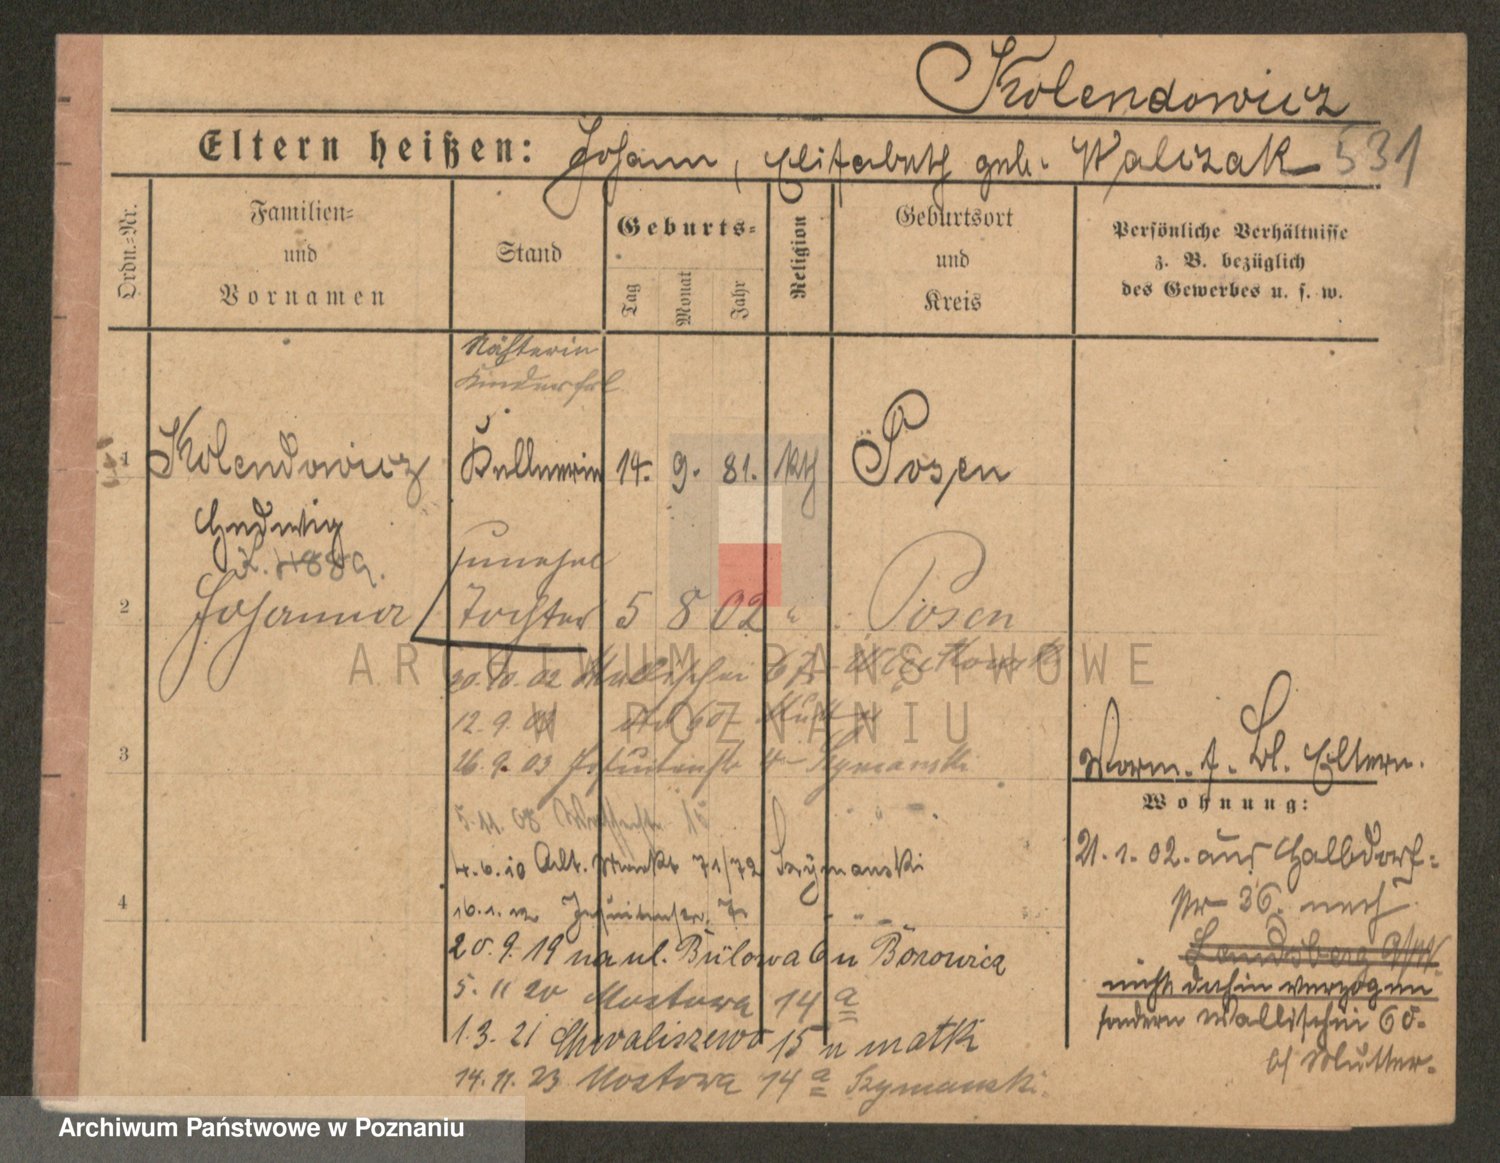 Kolendowicz
Eltern heißen: Johann, Elisabeth geb. Walczak 531
Ordn.=Nr.
Familien=
und
Vornamen
Stand
Geburts=
Tag
Monat
Jahr
Religion
Geburtsort
und
Kreis
Persönliche Verhältnisse
z. B. bezüglich
des Gewerbes u. s. w.
Nähterin
Kinderfrl
1 Kolendowicz Kellnerin 14. 9. 81. kth Posen
Hedwig
unehel
2 Johanna Tochter 5 8 02 " Posen
20. 10. 02 Wallischei
12. 9.
3
26. 9. 03 Jesuitenstr 4 Szymanski
5. 11. 08
4. 6. 10 Alt. Markt 71/72 Szymanski
4
16. 1. 12 Jesuitenstr.
20. 9. 19 na ul. Bülowa 6 u Borowicz
5. 11 20 Mostowa 14 a
1. 3. 21 Chwaliszewo 15 u matki
14. 11. 23 Mostowa 14 a Szymanski
Vorm. s. Bl. Eltern.
Wohnung:
21. 1. 02. aus Halbdorf=
str 36. nach
Landsberg a/W.
nicht dahin verzogen
sondern Wallischei 60.
b/ Mutter.
ARCHIWUM PAŃSTWOWE
W POZNANIU
Archiwum Państwowe w Poznaniu